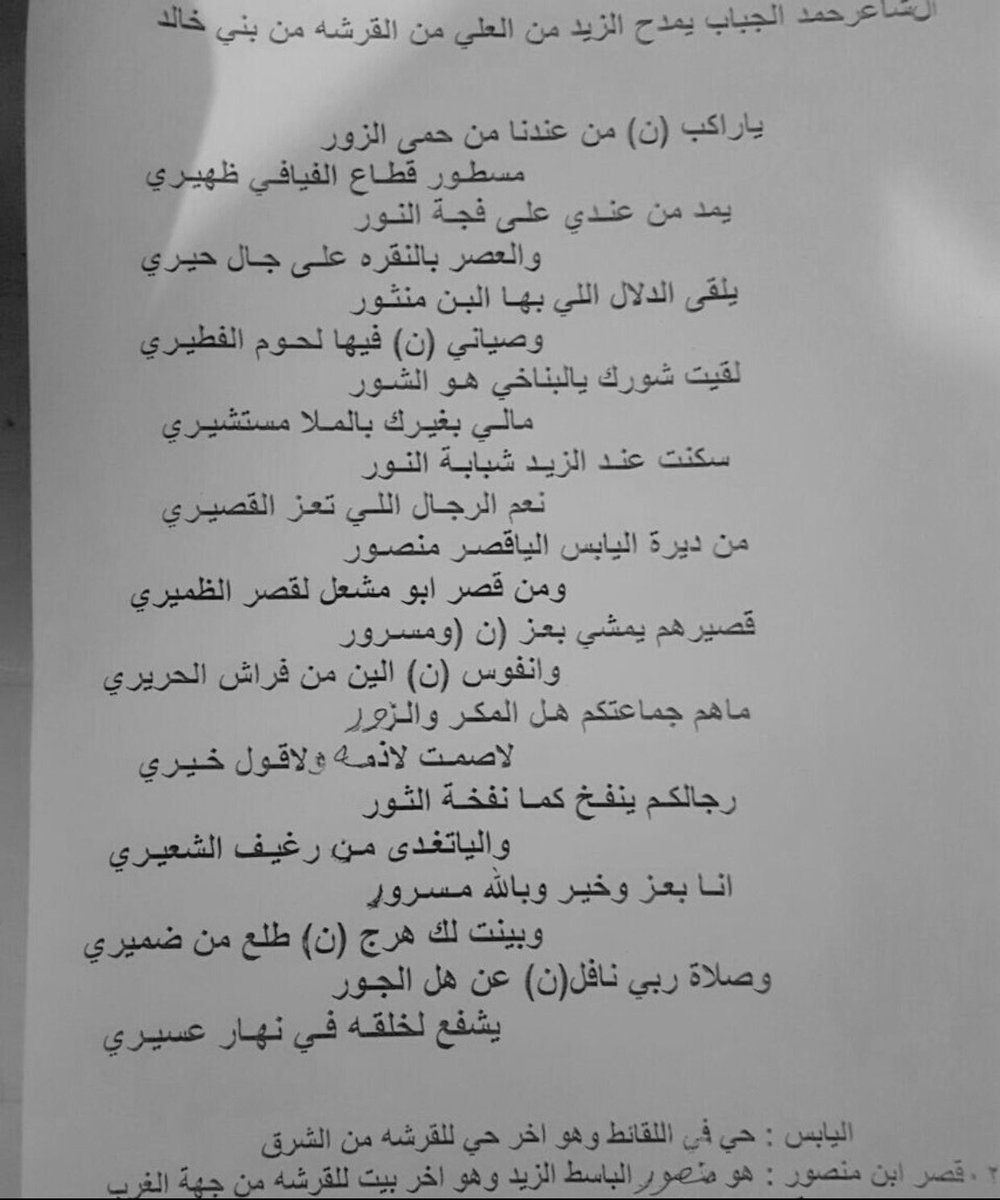 الشاعر حمد الجباب يمدح الزيد من العلي من القرشه من بني خالد
ياراكب (ن) من عندنا من حمى الزور
مسطور قطاع الفيافي ظهيري
يمد من عندي على فجة النور
والعصر بالنقره على جال حيري
يلقى الدلال اللي بها البن منثور
وصياني (ن) فيها لحوم الفطيري
لقيت شورك يالبناخي هو الشور
مالي بغيرك بالملا مستشيري
سكنت عند الزيد شبابة النور
نعم الرجال اللي تعز القصيري
من ديرة اليابس الياقصر منصور
ومن قصر ابو مشعل لقصر الظميري
قصيرهم يمشي بعز (ن (ومسرور
وانفوس (ن) الين من فراش الحريري
ماهم جماعتكم هل المكر والزور
لاصمت لاذمه ولاقول خيري
رجالكم ينفخ كما نفخة الثور
والياتغدى من رغيف الشعيري
انا بعز وخير وبالله مسرور
وبينت لك هرج (ن) طلع من ضميري
وصلاة ربي نافل(ن) عن هل الجور
يشفع لخلقه في نهار عسيري
اليابس : حي في اللقائط وهو اخر حي للقرشه من الشرق
٢ . قصر ابن منصور : هو منصور الباسط الزيد وهو اخر بيت للقرشه من جهة الغرب